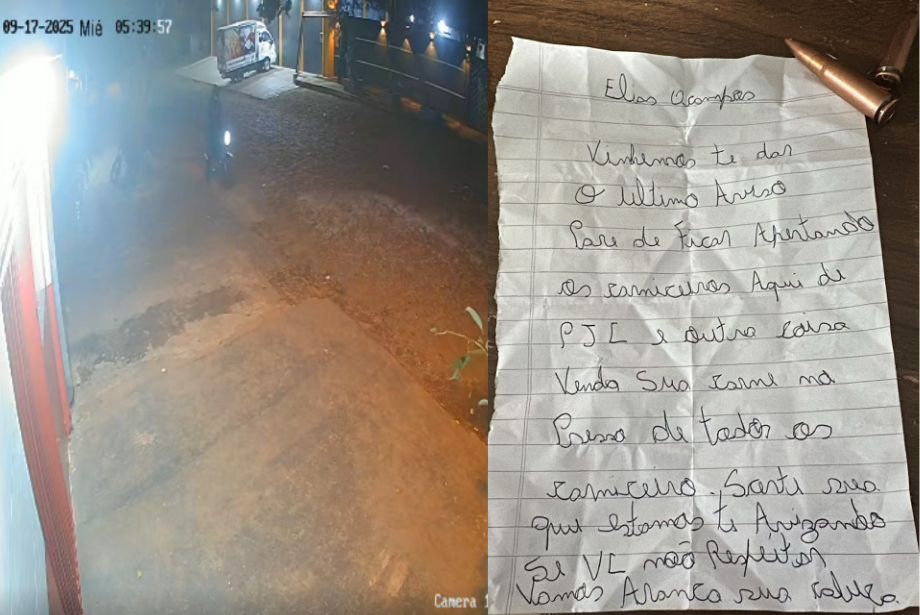 09-17-2025 Mié 05:39:57
Camera 1
Elias Ocampos
Vinhemos te dar
O ultimo Aviso
Pare de Ficar Apertando
os carniceiros Aqui de
PJC e outra coisa
Venda Sua carne na
Presso de todos os
carniceiro. Sorti sua
que estamos te Avizando
Se VC não Respeitar
Vamos Aranca sua cabeça.